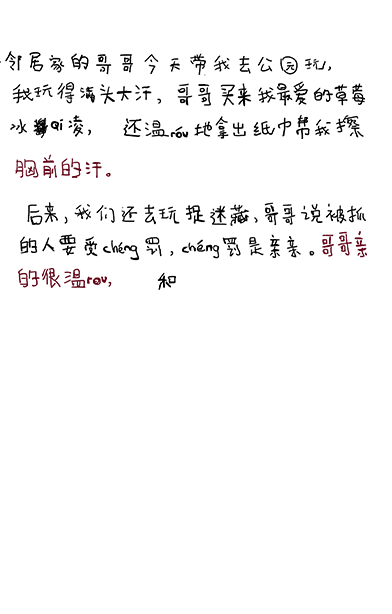 邻居家的哥哥今天带我去公园玩,
我玩得满头大汗,哥哥买来我最爱的草莓
冰qi凌, 还温róu地拿出纸巾帮我擦
胸前的汗。
后来,我们还去玩捉迷藏,哥哥说被抓
的人要受chéng罚,chéng罚是亲亲。哥哥亲
的很温rou, 和